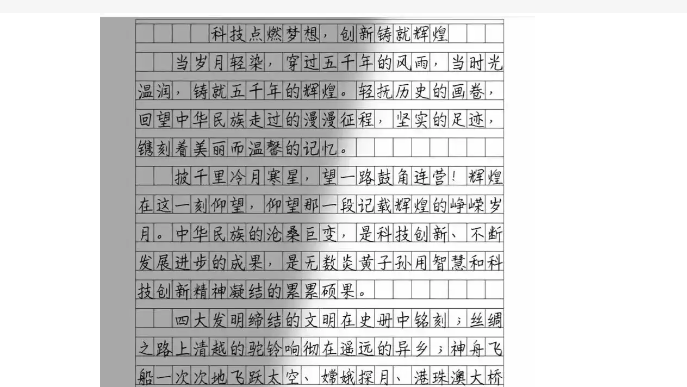 科技点燃梦想，创新铸就辉煌
当岁月轻染，穿过五千年的风雨，当时光
温润，铸就五千年的辉煌。轻抚历史的画卷，
回望中华民族走过的漫漫征程，坚实的足迹，
镌刻着美丽而温馨的记忆。
披千里冷月寒星，望一路鼓角连营！辉煌
在这一刻仰望，仰望那一段记载辉煌的峥嵘岁
月。中华民族的沧桑巨变，是科技创新、不断
发展进步的成果，是无数炎黄子孙用智慧和科
技创新精神凝结的累累硕果。
四大发明缔结的文明在史册中铭刻；丝绸
之路上清越的驼铃响彻在遥远的异乡；神舟飞
船一次次地飞跃太空、嫦娥探月、港珠澳大桥